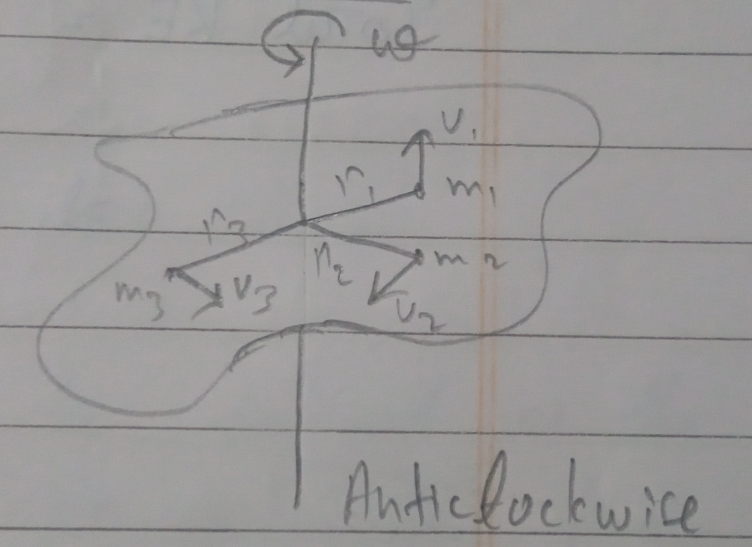 ω
v₁
r₁ m₁
r₃
r₂ m₂
m₃ v₃
v₂
Anticlockwise